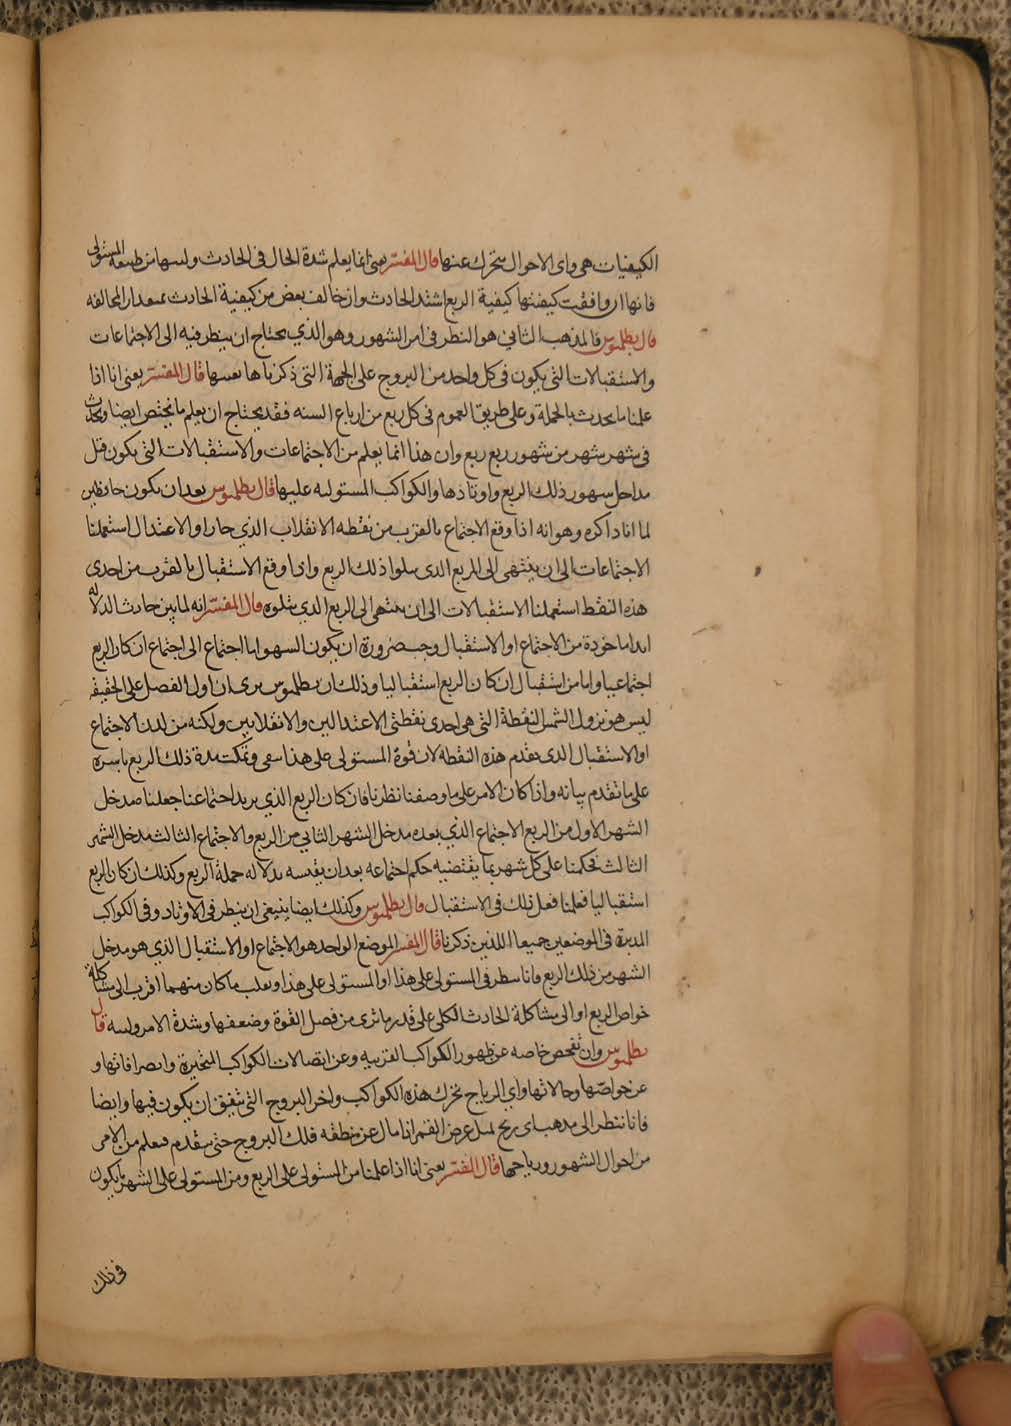 الكيفيات هي واي الاحوال يتحرك عنها قال المفسر يعني انما يعلم شدة الحال في الحادث ولينها من طبيعة المستولى
فانها ان وافقت كيفيتها كيفية الربع اشتد الحادث وان خالف بعض من كيفية الحادث بمقدار المخالفه
قال بطلميوس فالمذهب الثاني هو النظر في امر الشهور وهو الذي يحتاج ان ينظر فيه الى الاجتماعات
والاستقبالات التي يكون في كل واحد من البروج على الجهة التي ذكرناها بعينها قال المفسر يعني انا اذا
علمنا ما يحدث بالجملة وعلى طريق العموم في كل ربع من ارباع السنه فقد يحتاج ان يعلم ما يختص ايضا ويحدث
في شهر شهر من شهور ربع ربع وان هذا انما يعلم من الاجتماعات والاستقبالات التي يكون قبل
مداخل شهور ذلك الربع واوتادها والكواكب المستوليه عليها قال بطلميوس بعد ان يكون حافظين
لما انا ذاكره وهو انه اذا وقع الاجتماع بالقرب من نقطه الانقلاب الذي جاز او الاعتدال استعملنا
الاجتماعات الى ان ينتهى الى الربع الذى يتلوا ذلك الربع واذا وقع الاستقبال بالقرب من احدى
هذه النقط استعملنا الاستقبالات الى ان ينتهى الى الربع الذي يتلوه قال المفسر انه لما بين حادث الدلاله
ابدا ماخوذة من الاجتماع او الاستقبال وجب ضرورة ان يكون الشهر اما اجتماع الى اجتماع ان كان الربع
اجتماعيا واما من استقبال ان كان الربع استقباليا وذلك ان بطلميوس يرى ان اول الفصل على الحقيقه
ليس هو نزول الشمس النقطة التي هي احدى نقطتي الاعتدالين والانقلابين ولكنه من لدن الاجتماع
او الاستقبال الذى يقدم هذه النقطه لان قوة المستولى على هذا يبقى ويمكث مدة ذلك الربع باسره
على ما تقدم بيانه واذا كان الامر على ما وصفنا نظرنا فان كان الربع الذي يريد اجتماعنا جعلنا مدخل
الشهر الاول من الربع الاجتماع الذي بعده مدخل الشهر الثاني من الربع والاجتماع الثالث مدخل الشهر
الثالث فحكمنا على كل شهر بما يقتضيه حكم اجتماعه بعد ان يقيسه بدلاله جملة الربع وكذلك ان كان الربع
استقباليا فعلنا فعل ذلك في الاستقبال قال بطلميوس وكذلك ايضا ينبغي ان ينظر في الاوتاد وفي الكواكب
المدبرة في الموضعين جميعا اللذين ذكرنا قال المفسر الموضع الواحد هو الاجتماع او الاستقبال الذي هو مدخل
الشهر من ذلك الربع فانا ننظر في المستولى على هذا او المستولى على هذا ويغلب ما كان منهما اقرب الى مشاكلة
خواص الربع او الى مشاكلة الحادث الكلي على قدر ما نرى من فصل القوة وضعفها وشدة الامر ولينه قال
بطلميوس وان نفحص خاصه عن ظهور الكواكب القريبه وعن اتصالات الكواكب المتحيرة وانصرافاتها و
عن خواصها وحالاتها واي الرياح تحرك هذه الكواكب واخر البروج التي يتفق ان يكون فيها وايضا
فانا ننظر الى مذهب اي ريح يميل عرض القمر اذا مال عن منطقه فلك البروج حتى يتقدم فيعلم من الامر
من احوال الشهور ورياحها قال المفسر يعني انا اذا علمنا من المستولى على الربع ومن المستولى على الشهر ما يكون
في ذلك